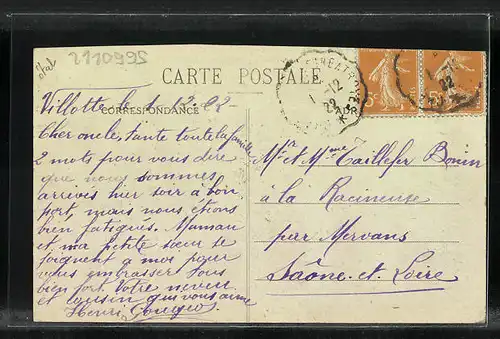 état
2110995
CARTE POSTALE
CORRESPONDANCE
1-12
22
1-12
22
5
Villotte le 1 12 22
Cher oncle, tante toute la famille
2 mots pour vous dire
que nous sommes
arrivés hier soir à bon
port, mais nous étions
bien fatigués. Maman
et ma petite sœur se
joignent à moi pour
vous embrasser tous
bien fort. Votre neveu
et cousin qui vous aime
Henri
Mr et Mme Taillefer Bonin
à la Racineuse
par Mervans
Saône-et-Loire